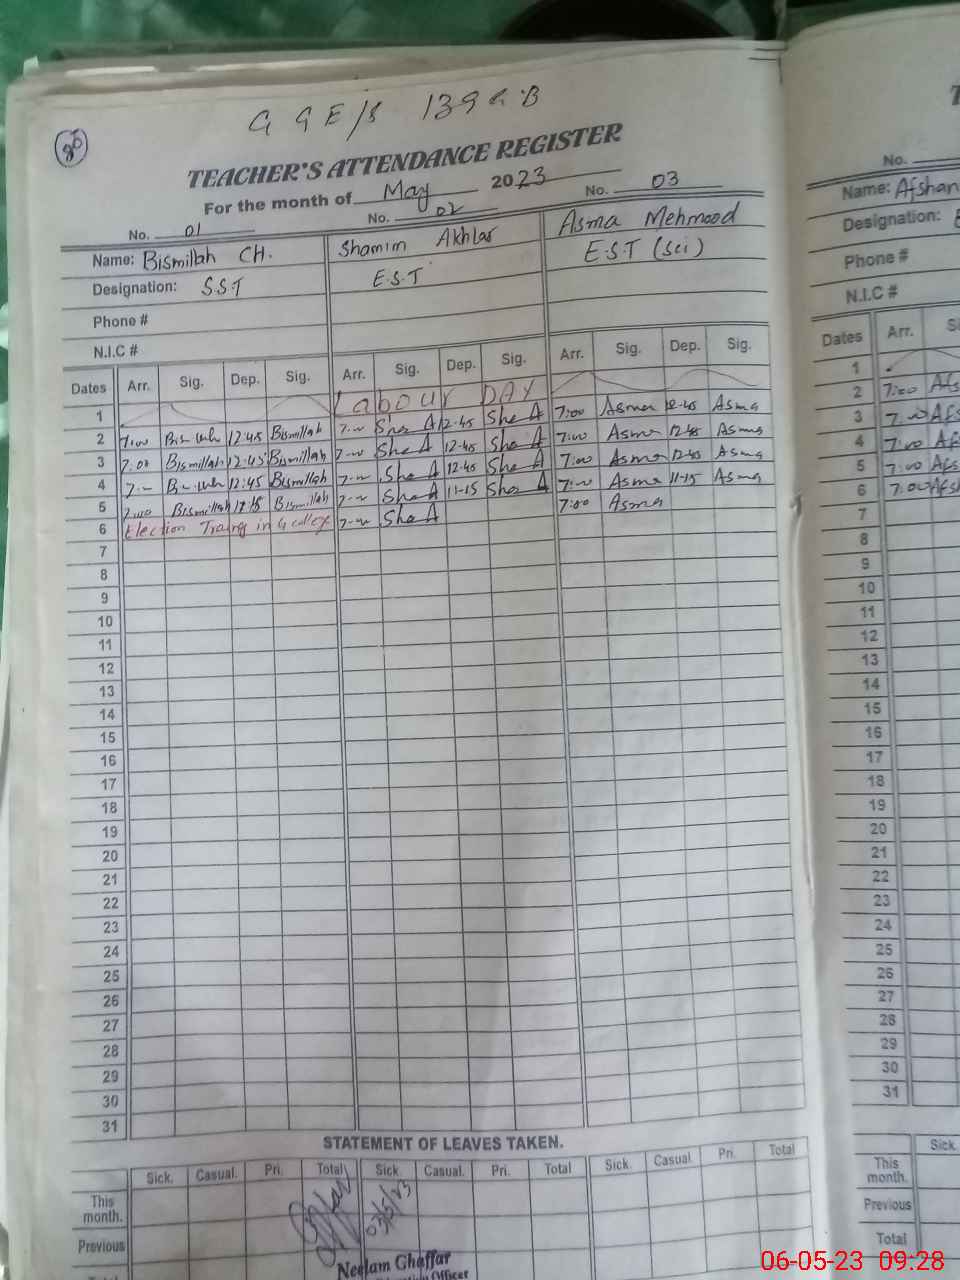 G G E/S 139 G.B
86
TEACHER'S ATTENDANCE REGISTER
For the month of May 2023
No. 01 No. 02 No. 03
Name: Bismillah CH. Shamim Akhtar Asma Mehmood
Designation: S.S.T E.S.T E.S.T (Sci)
Phone #
N.I.C #
Dates Arr. Sig. Dep. Sig. Arr. Sig. Dep. Sig. Arr. Sig. Dep. Sig.
1 Labour DAY
2 7:00 Bismillah 12:45 Bismillah 7:00 Sha A 12-45 Sha A 7:00 Asma 12-45 Asma
3 7:00 Bismillah 12:45 Bismillah 7:00 Sha A 12-45 Sha A 7:00 Asma 12-45 Asma
4 7:00 Bismillah 12:45 Bismillah 7:00 Sha A 12-45 Sha A 7:00 Asma 12-45 Asma
5 7:00 Bismillah Bismillah 7:00 Sha A 11-15 Sha A 7:00 Asma 11-15 Asma
6 Election in 7:00 Sha A 7:00 Asma
7
8
9
10
11
12
13
14
15
16
17
18
19
20
21
22
23
24
25
26
27
28
29
30
31
STATEMENT OF LEAVES TAKEN.
Sick. Casual. Pri. Total Sick. Casual. Pri. Total Sick. Casual. Pri. Total
This month.
Previous
Total
Neelam Ghaffar
Officer
No.
Name: Afshan
Designation:
Phone #
N.I.C #
Dates Arr.
1
2 7:00 Afs
3 7:00 Afs
4 7:00 Afs
5 7:00 Afs
6 7:00 Afs
7
8
9
10
11
12
13
14
15
16
17
18
19
20
21
22
23
24
25
26
27
28
29
30
31
Sick.
This month.
Previous
Total
06-05-23 09:28